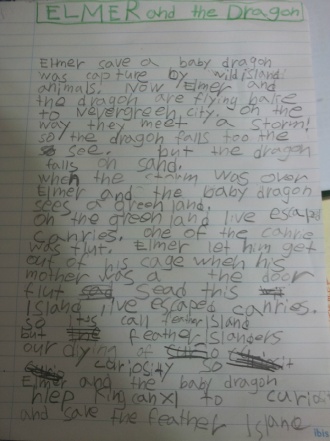 ELMER and the Dragon
Elmer save a baby dragon
was capture by wild island
animals. Now Elmer and
the dragon are flying balse
to Nevergreen city. On the
way they meet a storm!
so the dragon falls too the
soe. but the dragon
falls on sand.
when the storm was over
Elmer and the baby dragon
sees a green land.
On the green land live escaped
canries. one of the canre
was flut. Elmer let him get
out of his cage when his
mother was a the door
flut sead this
island live escaped canries.
So call feather Island
but feather Islanders
our diyin of
cariosity so
Elmer and the baby dragon
hlep King can XI to curiosi
and save the feather Islane